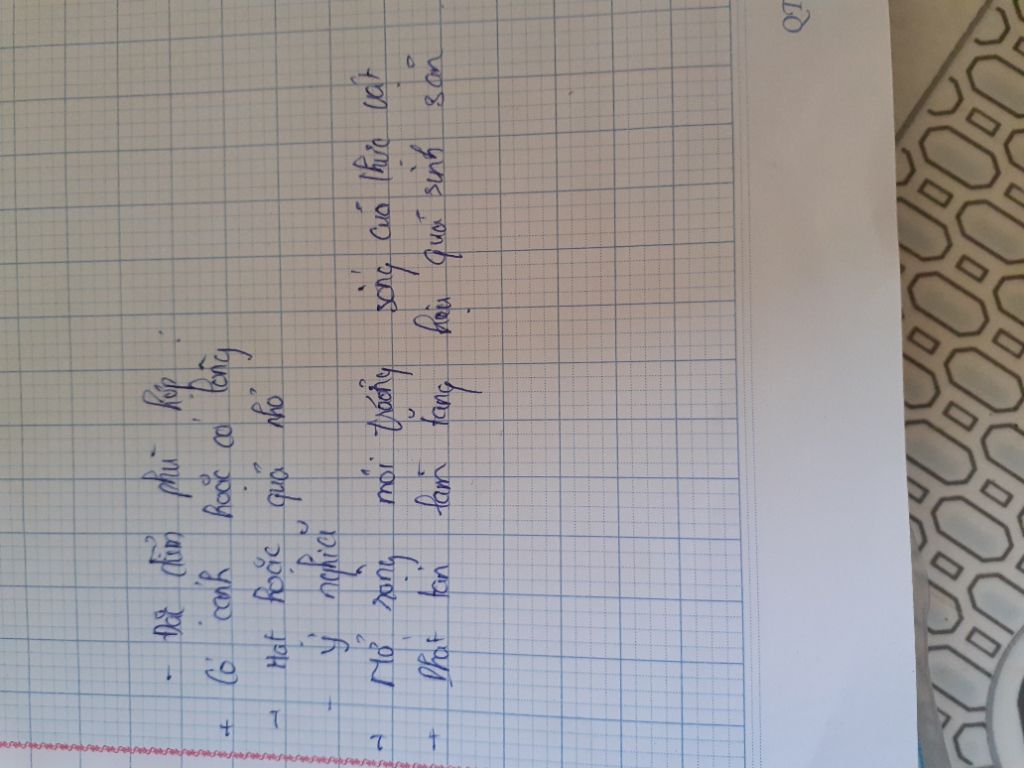 - Đặc điểm phù hợp:
+ Có cánh hoặc có lông
→ Hạt hoặc quả nhỏ
- Ý nghĩa
→ Mở rộng môi trường sống của thực vật
+ Phát tán làm tăng hiệu quả sinh sản